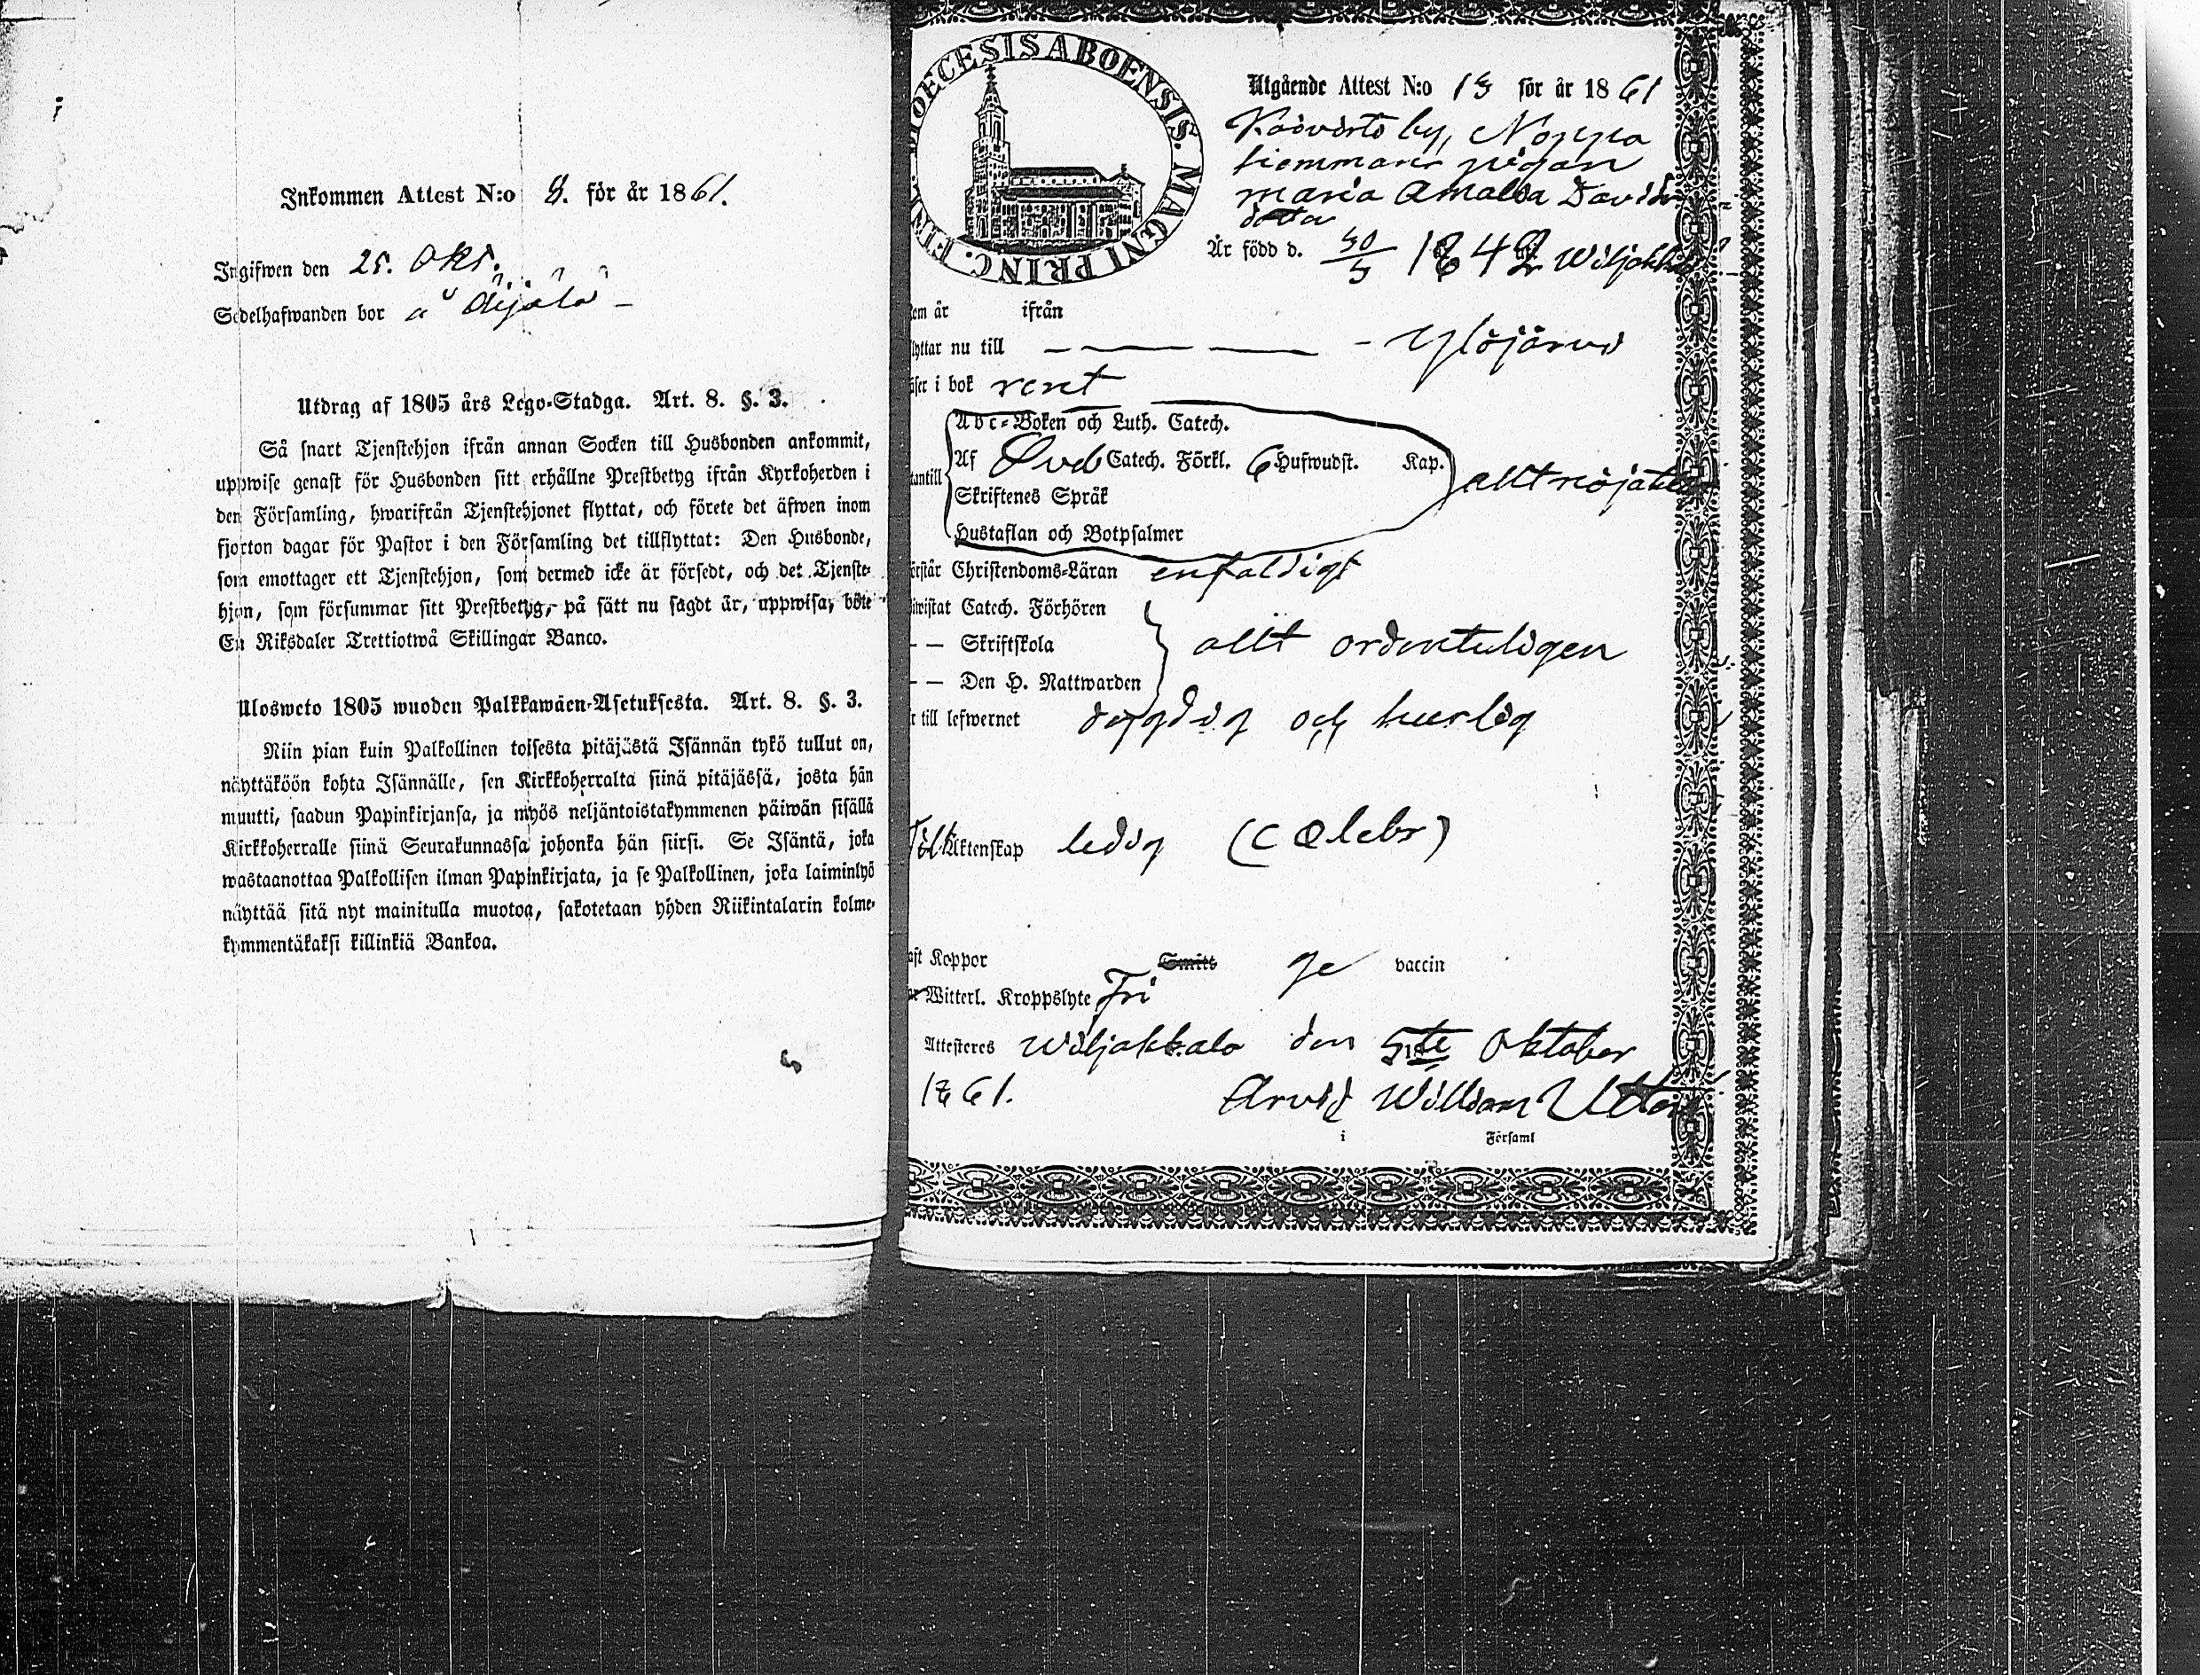 Inkommen Attest N:o 8. för år 1861.
Ingifwen den 25. Okt.
Sedelhafwanden bor å
Utdrag af 1805 års Lego-Stadga. Art. 8. §. 3.
Så snart Tjenstehjon ifrån annan Socken till Husbonden ankommit,
uppwise genast för Husbonden sitt erhållne Prestbetyg ifrån Kyrkoherden i
den Församling, hwarifrån Tjenstehjonet flyttat, och förete det äfwen inom
fjorton dagar för Pastor i den Församling det tillflyttat: Den Husbonde,
som emottager ett Tjenstehjon, som dermed icke är försedt, och det Tjenste-
hjon, som försummar sitt Prestbetyg, på sätt nu sagdt är, uppwisa, böte
En Riksdaler Trettiotwå Skillingar Banco.
Ulosweto 1805 wuoden Palkkawäen-Asetuksesta. Art. 8. §. 3.
Niin pian kuin Palkollinen toisesta pitäjästä Isännän tykö tullut on,
näyttäköön kohta Isännälle, sen Kirkkoherralta siinä pitäjässä, josta hän
muutti, saadun Papinkirjansa, ja myös neljäntoistakymmenen päiwän sisällä
Kirkkoherralle siinä Seurakunnassa johonka hän siirsi. Se Isäntä, joka
wastaanottaa Palkollisen ilman Papinkirjata, ja se Palkollinen, joka laiminlyö
näyttää sitä nyt mainitulla muotoa, sakotetaan yhden Riikintalarin kolme-
kymmentäkaksi killinkiä Bankoa.
DIOECESIS ABOENSIS. MAGNI PRINC. FINL.
Utgående Attest N:o 13 för år 1861
by, Noppa
hemmans pigan
Maria Amalia Davids
dotter
Är född d. 30/3 1842 Wiljakkala
ifrån
flyttar nu till — — — — Ylöjärvi
läser i bok rent
Abc-Boken och Luth. Catech.
Af Sveb Catech. Förkl. 6 Hufwudst. Kap.
utantill Skriftenes Språk allt nöjaktigt
Hustaflan och Botpsalmer
förstår Christendoms-Läran enfaldigt
biwistat Catech. Förhören
— — Skriftskola allt ordenteligen
— — Den H. Nattwarden
är till lefwernet dygdig och hurlig
Till Äktenskap ledig (Cælebs)
haft Koppor Smitt ge vaccin
Witterl. Kroppslyte Fri
Attesteres Wiljakkala den 5te Oktober
1861. Arvid William
i Församl